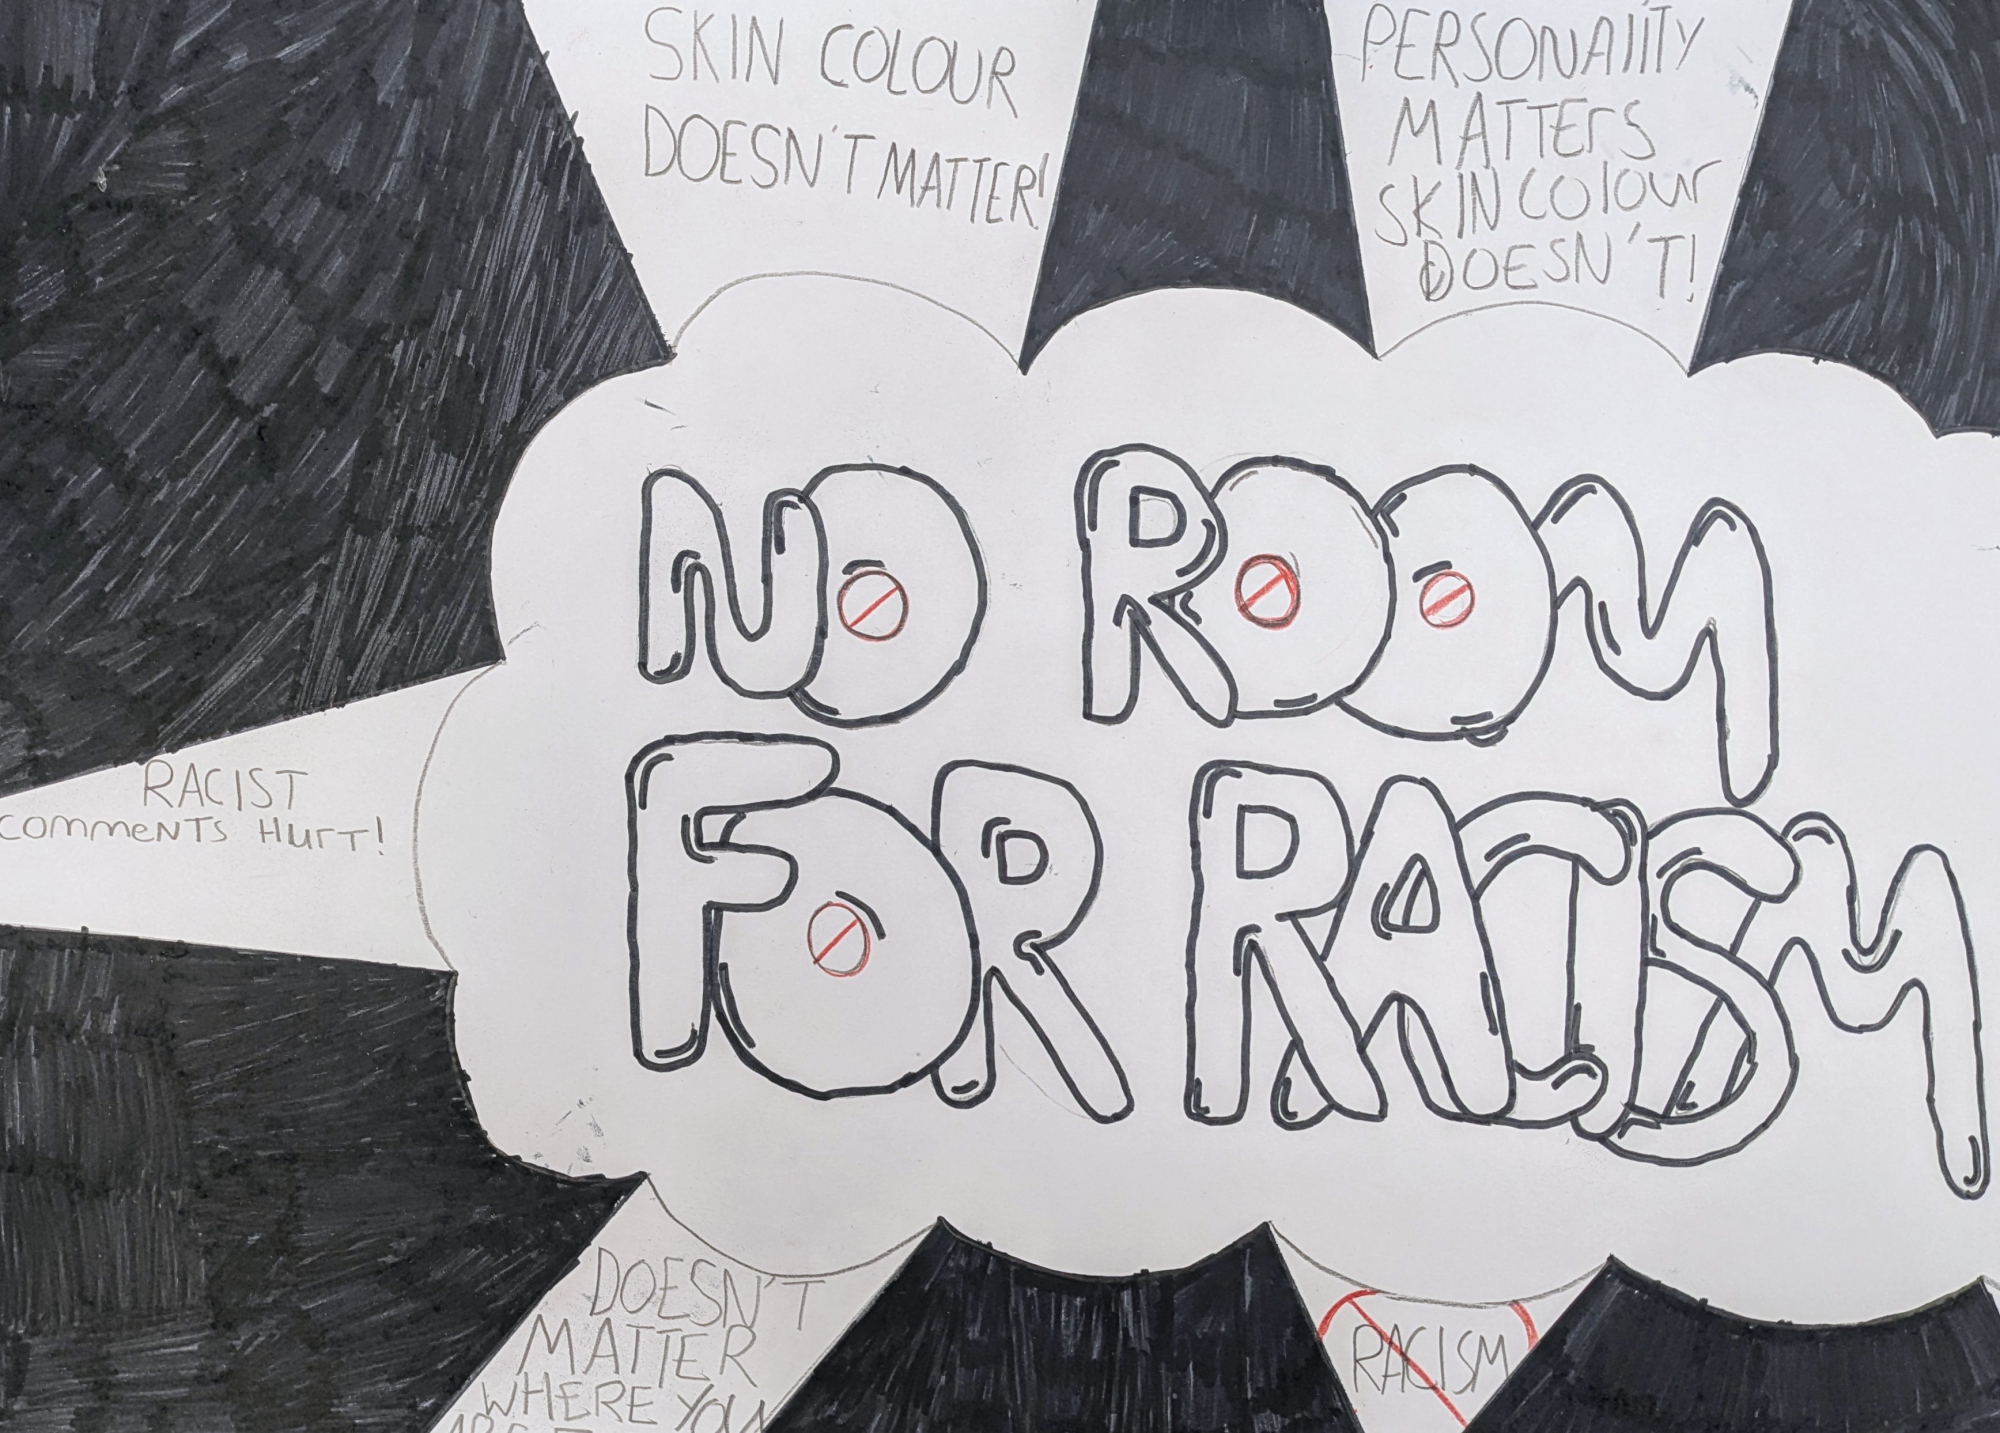 SKIN COLOUR
DOESN'T MATTER!
PERSONAlITY
MATTErS
SKIN COlOur
DOESN'T!
NO ROOM
FOR RACISM
RACIST
commeNTS HurT!
DOESN'T
MATTER
WHERE YOU
ARE
RACISM